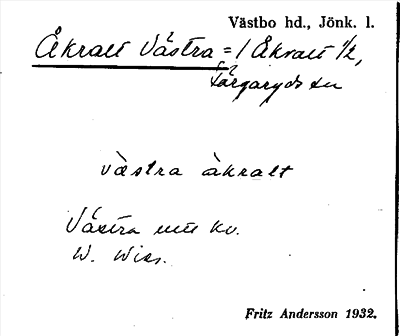 Västbo hd., Jönk. l.
Åkralt Västra = 1 Åkralt 1/2,
Färgaryds sn
västra åkralt
Västra
W. Wiss.
Fritz Andersson 1932.